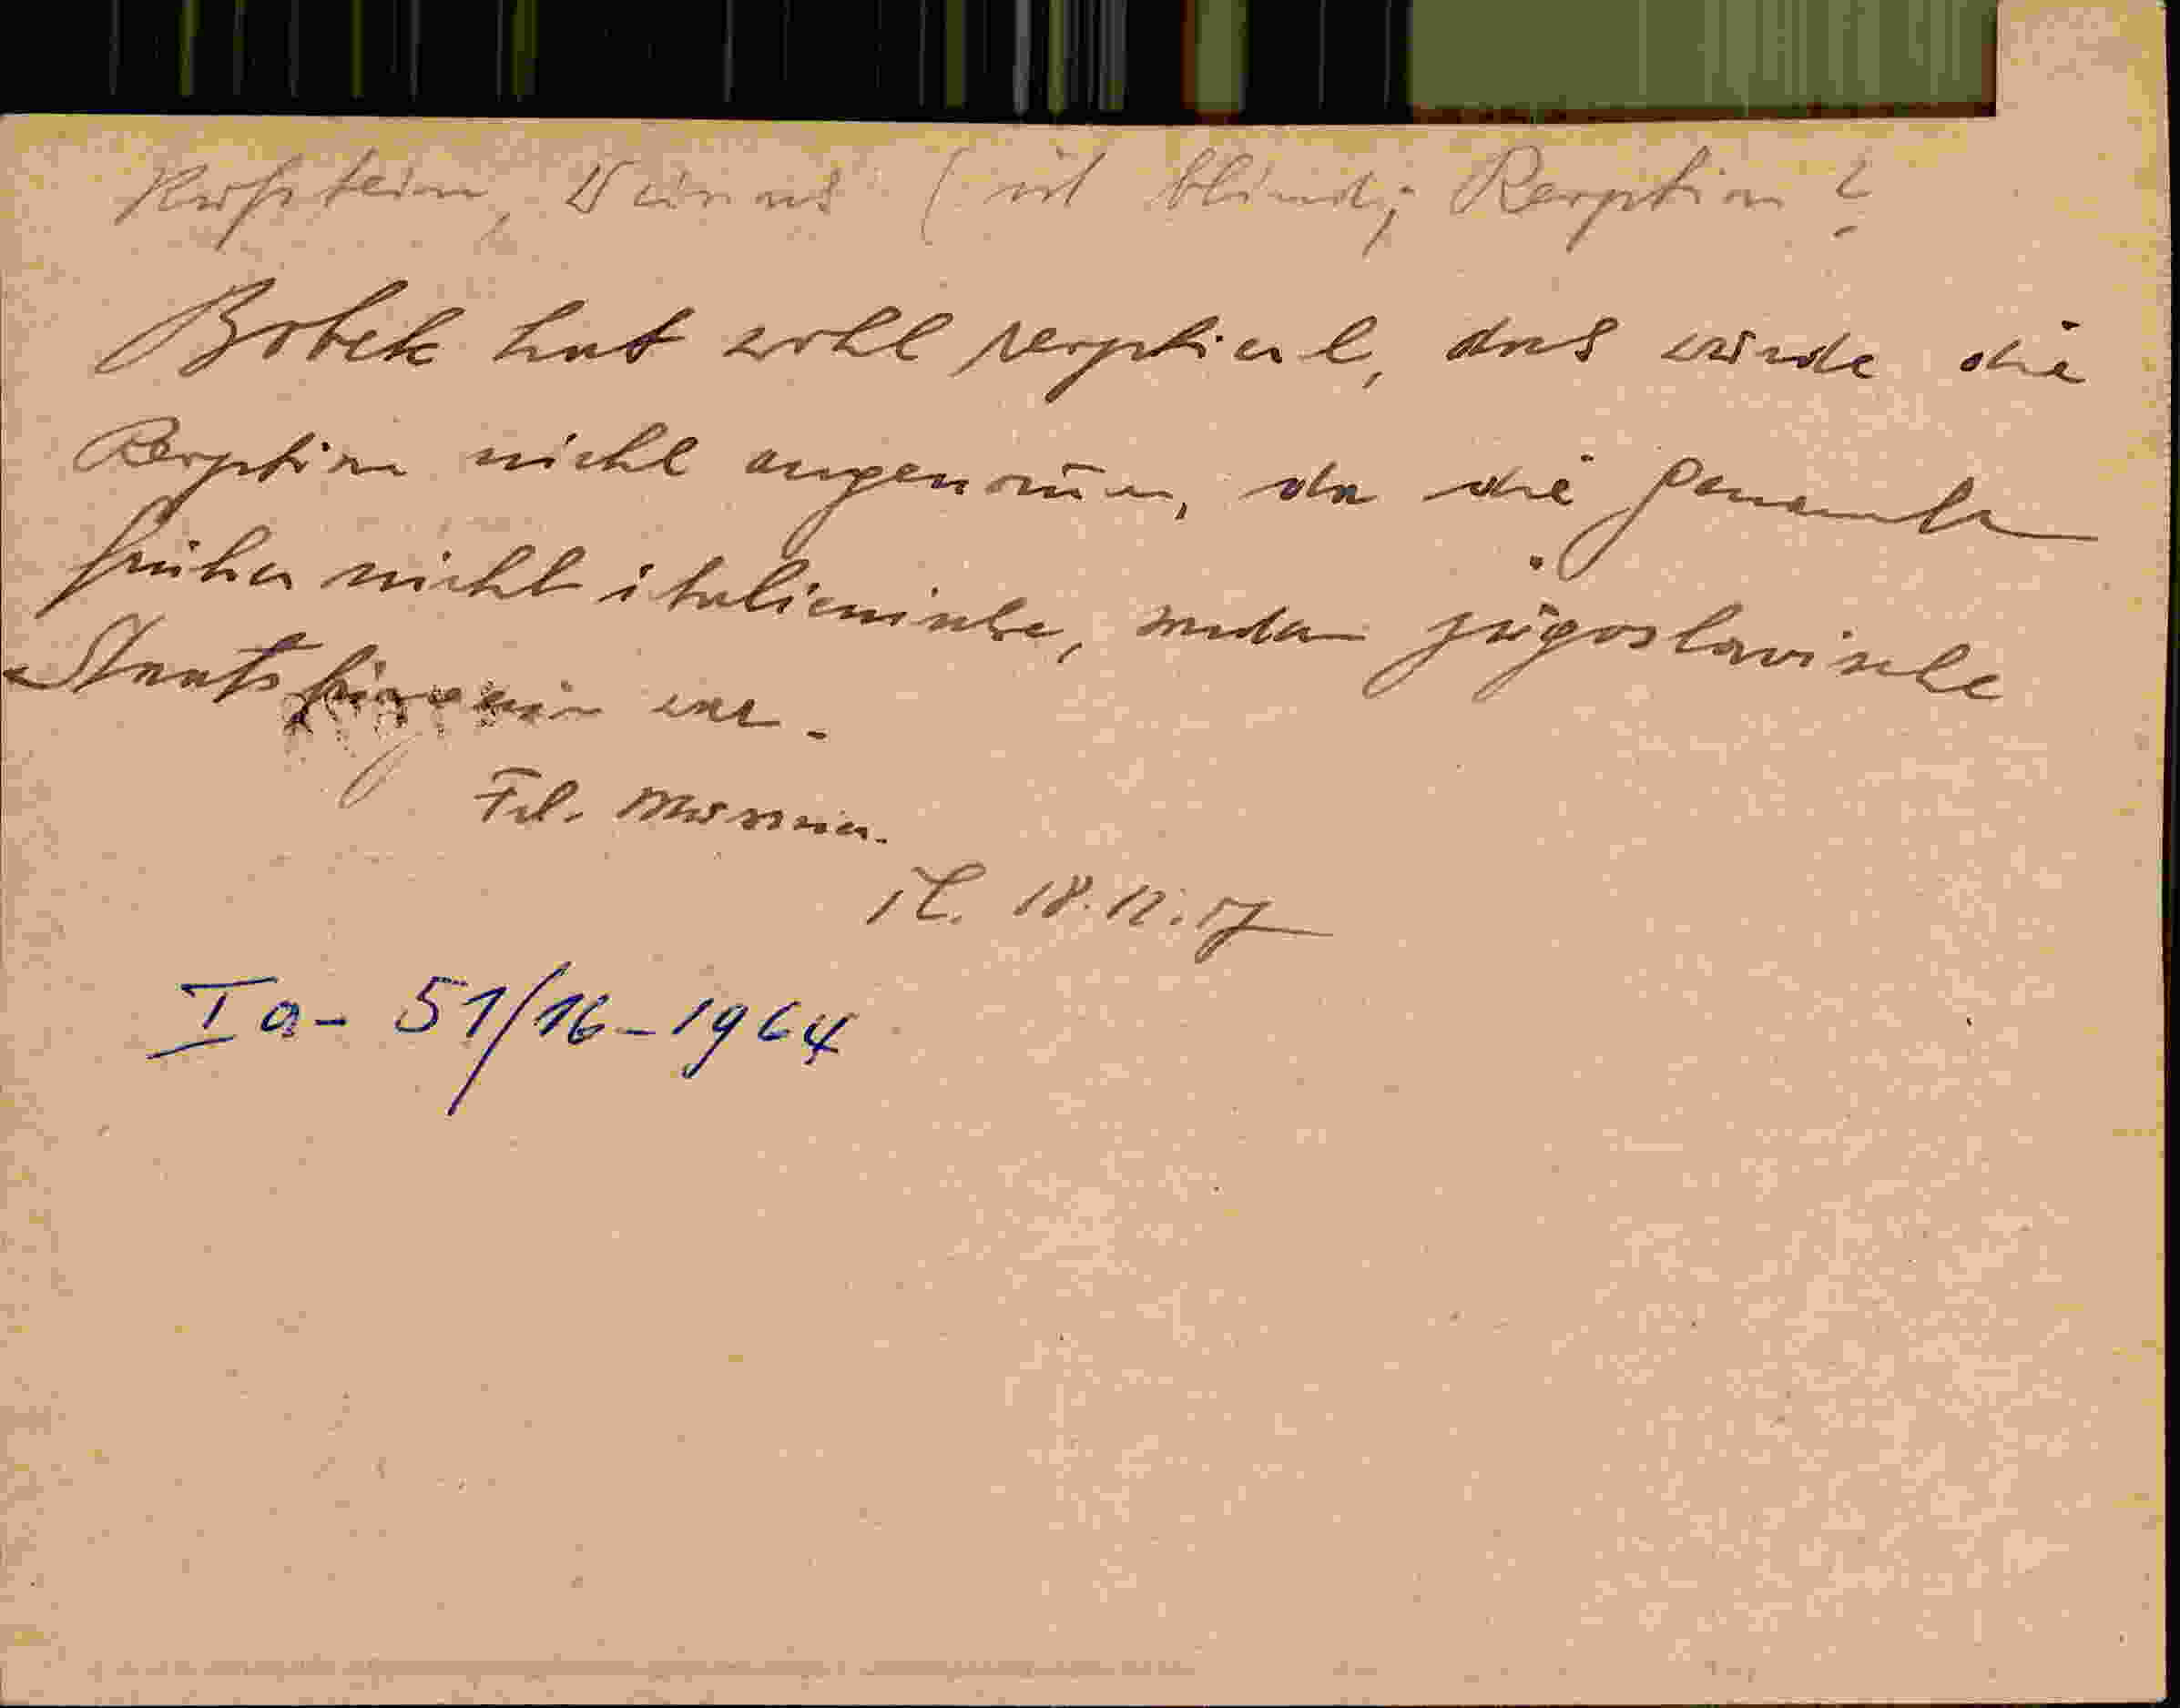 Kufstein, (ist blind; Reoption?
Bobek hat wohl reoptiert, doch wurde die
Reoption nicht angenom̄en, da die Genannte
früher nicht italienische, sondern jugoslavische
Staatsbürgerin war.
Frl.
18.12.57
Ia - 51/16 - 1964